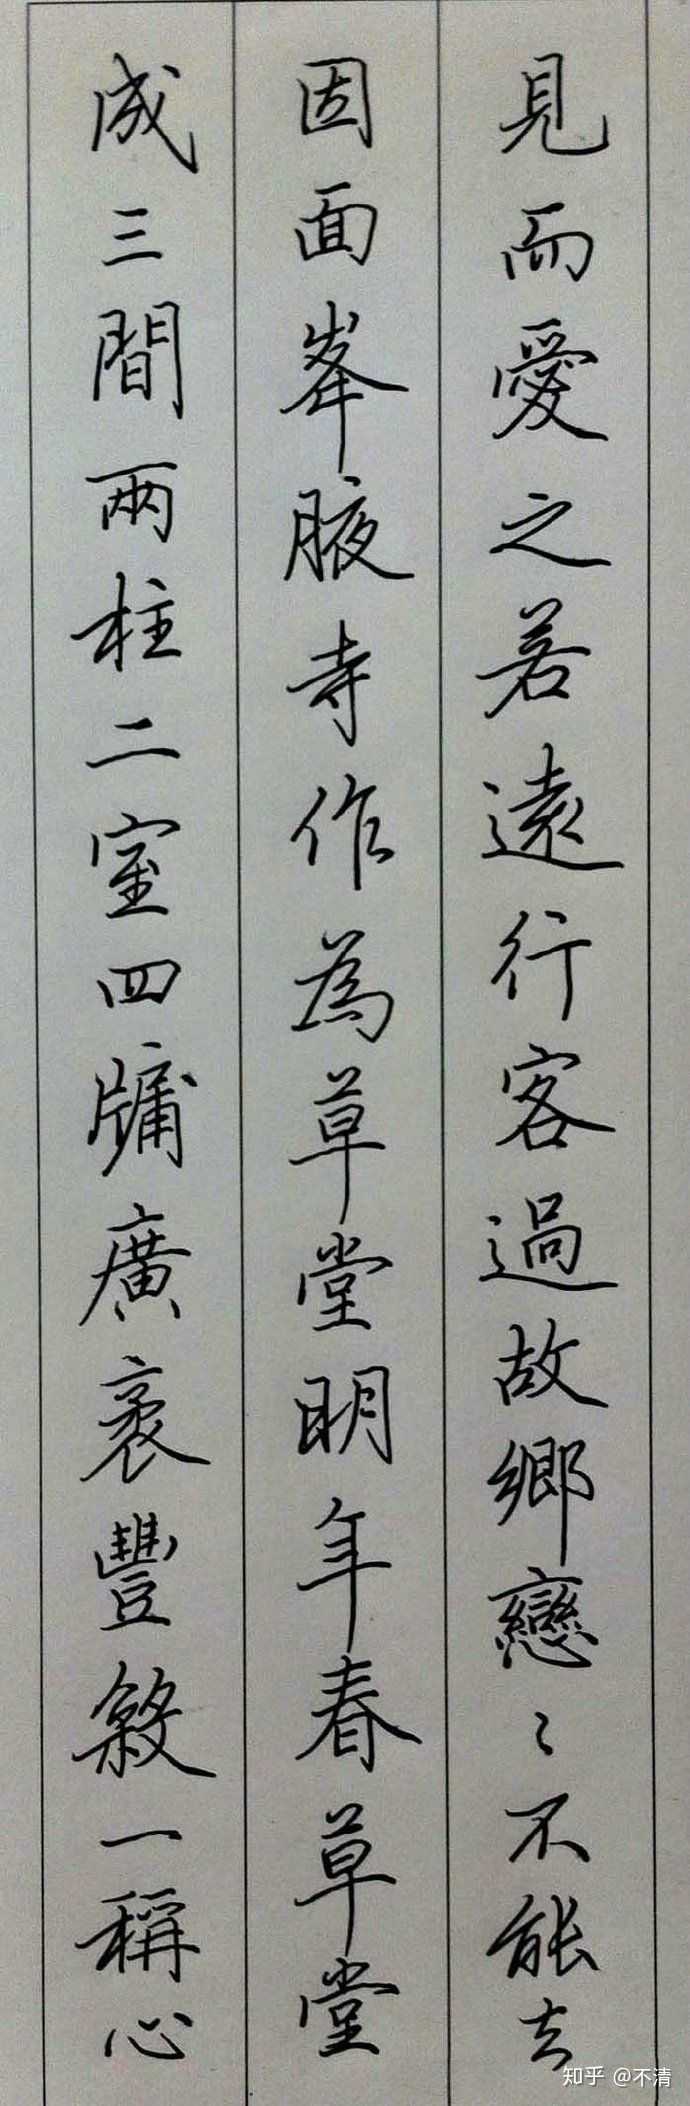 見而愛之若遠行客過故鄉戀々不能去
因面峯腋寺作為草堂明年春草堂
成三間兩柱二室四牗廣袤豐敘一稱心
知乎 @不清